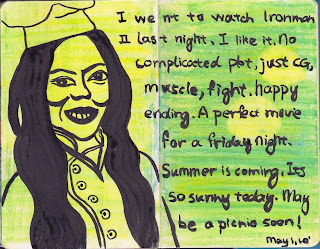 I went to watch Ironman
II last night. I like it. No
complicated plot, just CG,
muscle, fight. happy
ending. A perfect movie
for a friday night.
Summer is coming, Its
so sunny today. May
be a picnic soon!
May 1, 10'